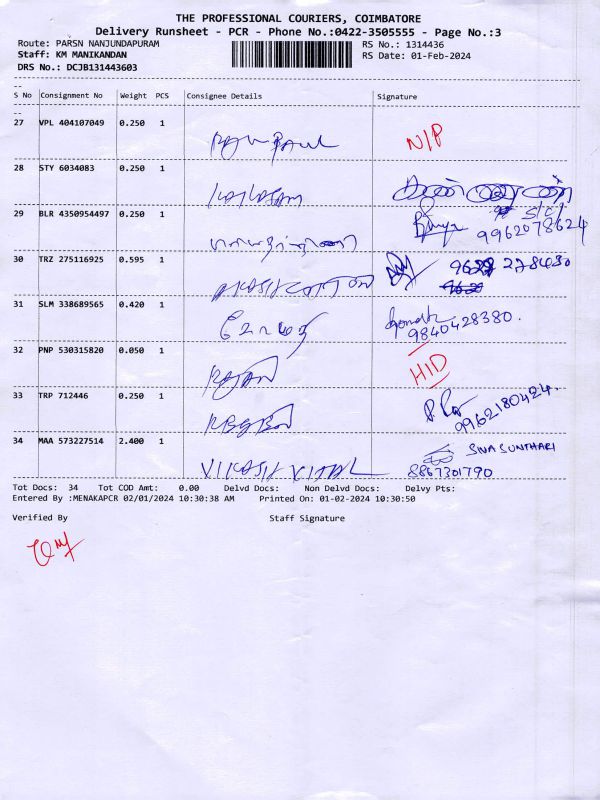 THE PROFESSIONAL COURIERS, COIMBATORE
Delivery Runsheet - PCR - Phone No.:0422-3505555 - Page No.:3
Route: PARSN NANJUNDAPURAM RS No.: 1314436
Staff: KM MANIKANDAN RS Date: 01-Feb-2024
DRS No.: DCJB131443603
S No Consignment No Weight PCS Consignee Details Signature
27 VPL 404107049 0.250 1 N/P
28 STY 6034083 0.250 1 KAILASAM
29 BLR 4350954497 0.250 1 9962078624
30 TRZ 275116925 0.595 1 AKASH COTTON 228430
31 SLM 338689565 0.420 1 9840428380.
32 PNP 530315820 0.050 1 RAJAN HID
33 TRP 712446 0.250 1 9962180424.
34 MAA 573227514 2.400 1 VIKASH SIVA SUNTHARI
8867301790
Tot Docs: 34 Tot COD Amt: 0.00 Delvd Docs: Non Delvd Docs: Delvy Pts:
Entered By :MENAKAPCR 02/01/2024 10:30:38 AM Printed On: 01-02-2024 10:30:50
Verified By Staff Signature